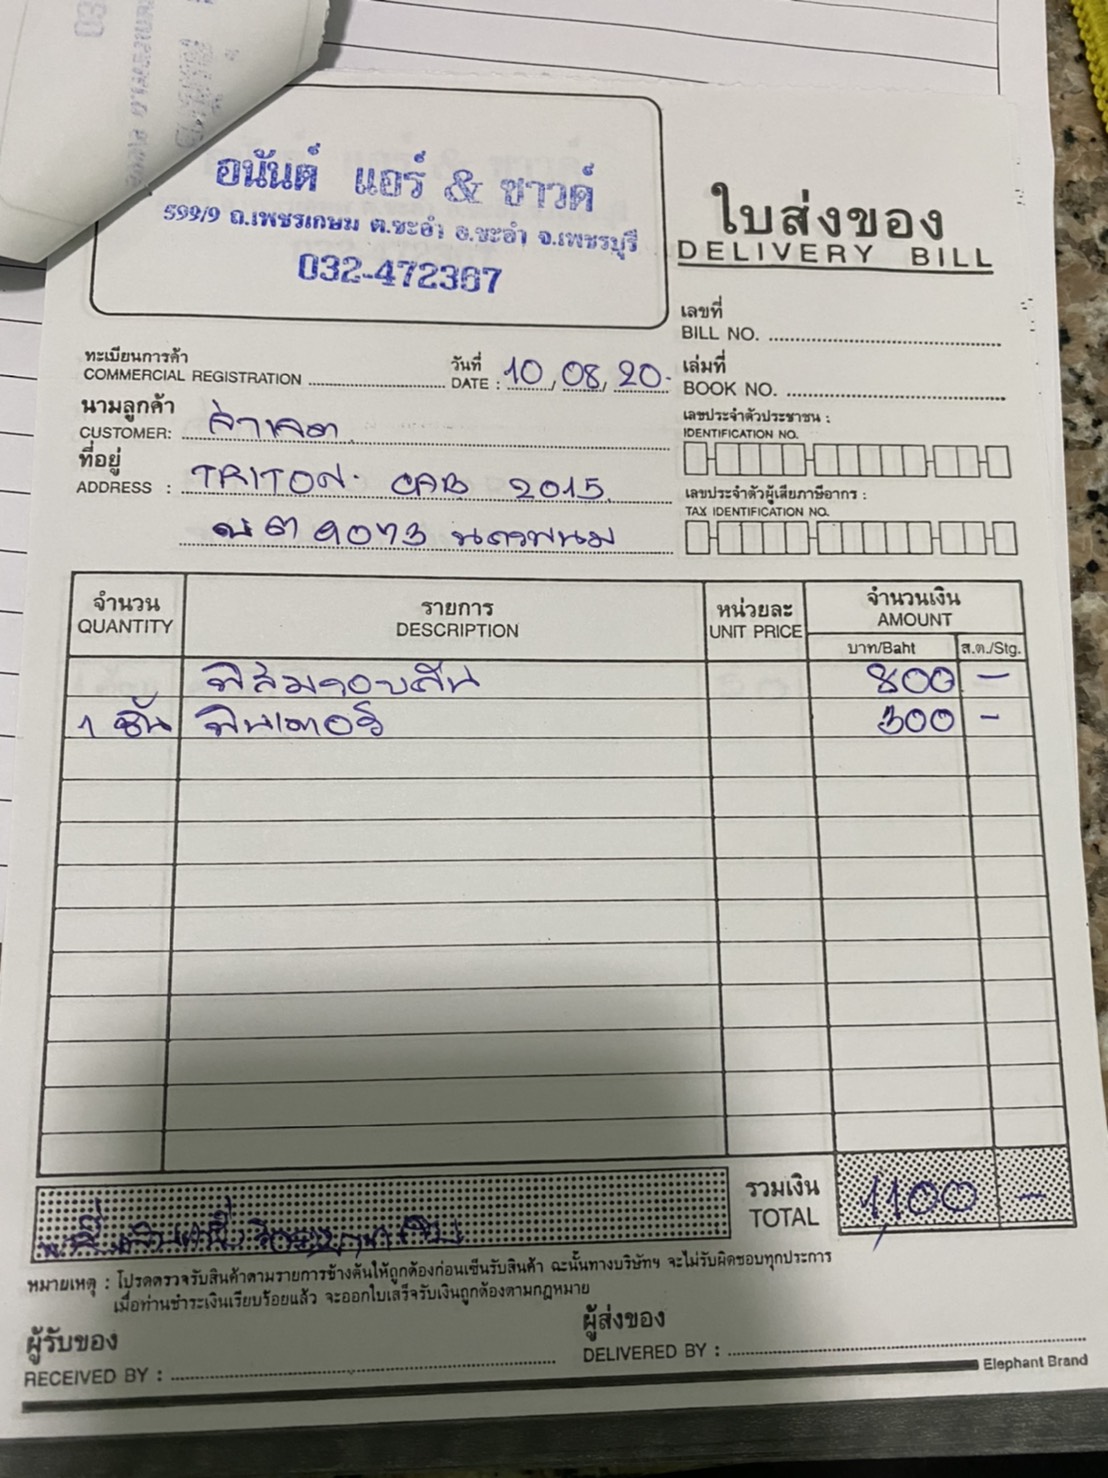 อนันต์ แอร์ & ซาวด์
599/9 ถ.เพชรเกษม ต.ชะอำ อ.ชะอำ จ.เพชรบุรี
032-472367
ใบส่งของ
DELIVERY BILL
เลขที่
BILL NO.
ทะเบียนการค้า
COMMERCIAL REGISTRATION
วันที่
DATE : 10, 08, 20.
เล่มที่
BOOK NO.
นามลูกค้า
CUSTOMER:
ที่อยู่
ADDRESS : TRITON. CAB 2015
นครพนม
เลขประจำตัวประชาชน :
IDENTIFICATION NO.
เลขประจำตัวผู้เสียภาษีอากร :
TAX IDENTIFICATION NO.
จำนวน รายการ หน่วยละ จำนวนเงิน
QUANTITY DESCRIPTION UNIT PRICE AMOUNT
บาท/Baht ส.ต./Stg.
ฟิล์มรอบคัน 800 -
1 ชิ้น 300 -
รวมเงิน
TOTAL 1,100 -
หมายเหตุ : โปรดตรวจรับสินค้าตามรายการข้างต้นให้ถูกต้องก่อนเซ็นรับสินค้า ฉะนั้นทางบริษัทฯ จะไม่รับผิดชอบทุกประการ
เมื่อท่านชำระเงินเรียบร้อยแล้ว จะออกใบเสร็จรับเงินถูกต้องตามกฎหมาย
ผู้รับของ
RECEIVED BY :
ผู้ส่งของ
DELIVERED BY :
Elephant Brand